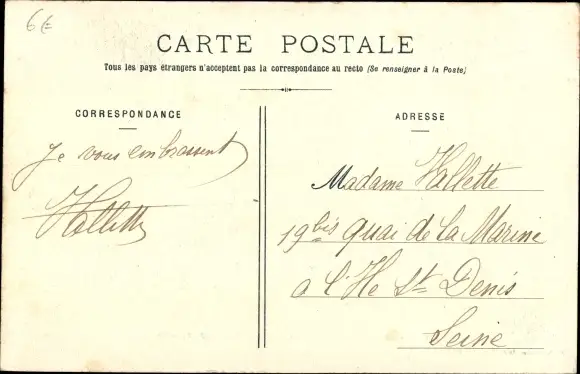 6€
CARTE POSTALE
Tous les pays étrangers n'acceptent pas la correspondance au recto (Se renseigner à la Poste)
CORRESPONDANCE
Je vous embrassent
Hallette
ADRESSE
Madame Hallette
19bis quai de La Marine
a l'Ile St Denis
Seine